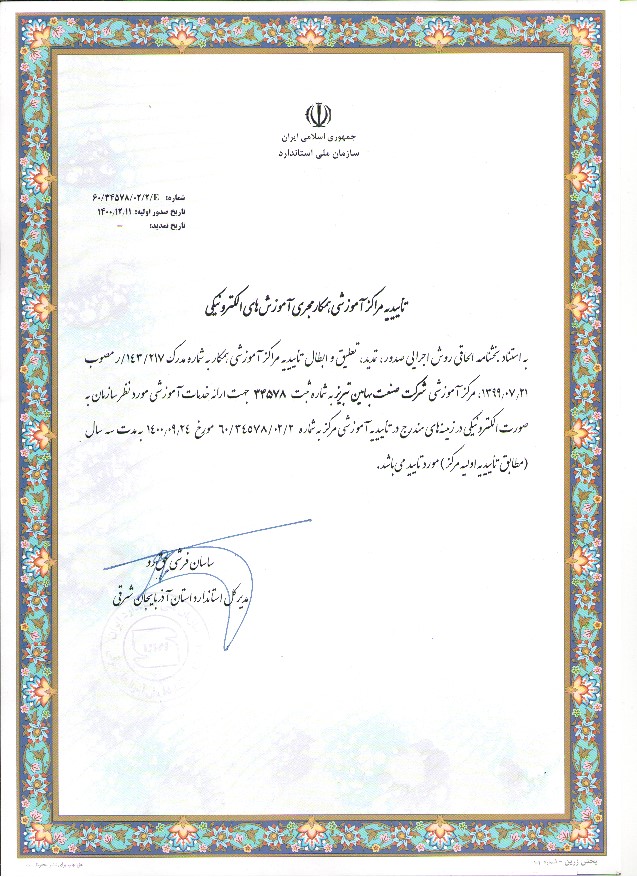 جمهوری اسلامی ایران
سازمان ملی استاندارد
شماره: ۶۰/۳۴۵۷۸/۰۲/۲/E
تاریخ صدور اولیه: ۱۴۰۰.۱۲.۱۱
تاریخ تمدید: -
تاییدیه مراکز آموزشی همکار مجری آموزش های الکترونیکی
به استناد بخشنامه الحاقی روش اجرایی صدور، تمدید، تعلیق و ابطال تاییدیه مراکز آموزشی همکار به شماره مدرک ۱۴۳/۲۱۷/ر مصوب
۱۳۹۹.۰۷.۲۱، مرکز آموزشی شرکت صنعت بهابین تبریز به شماره ثبت ۳۴۵۷۸ جهت ارائه خدمات آموزشی مورد نظر سازمان به
صورت الکترونیکی در زمینه های مندرج در تاییدیه آموزشی مرکز به شماره ۶۰/۳۴۵۷۸/۰۲/۲ مورخ ۱۴۰۰.۰۹.۲۴ به مدت سه سال
(مطابق تاییدیه اولیه مرکز) مورد تایید می باشد.
ساسان فرشی
مدیر کل استاندارد استان آذربایجان شرقی
پخش زرین